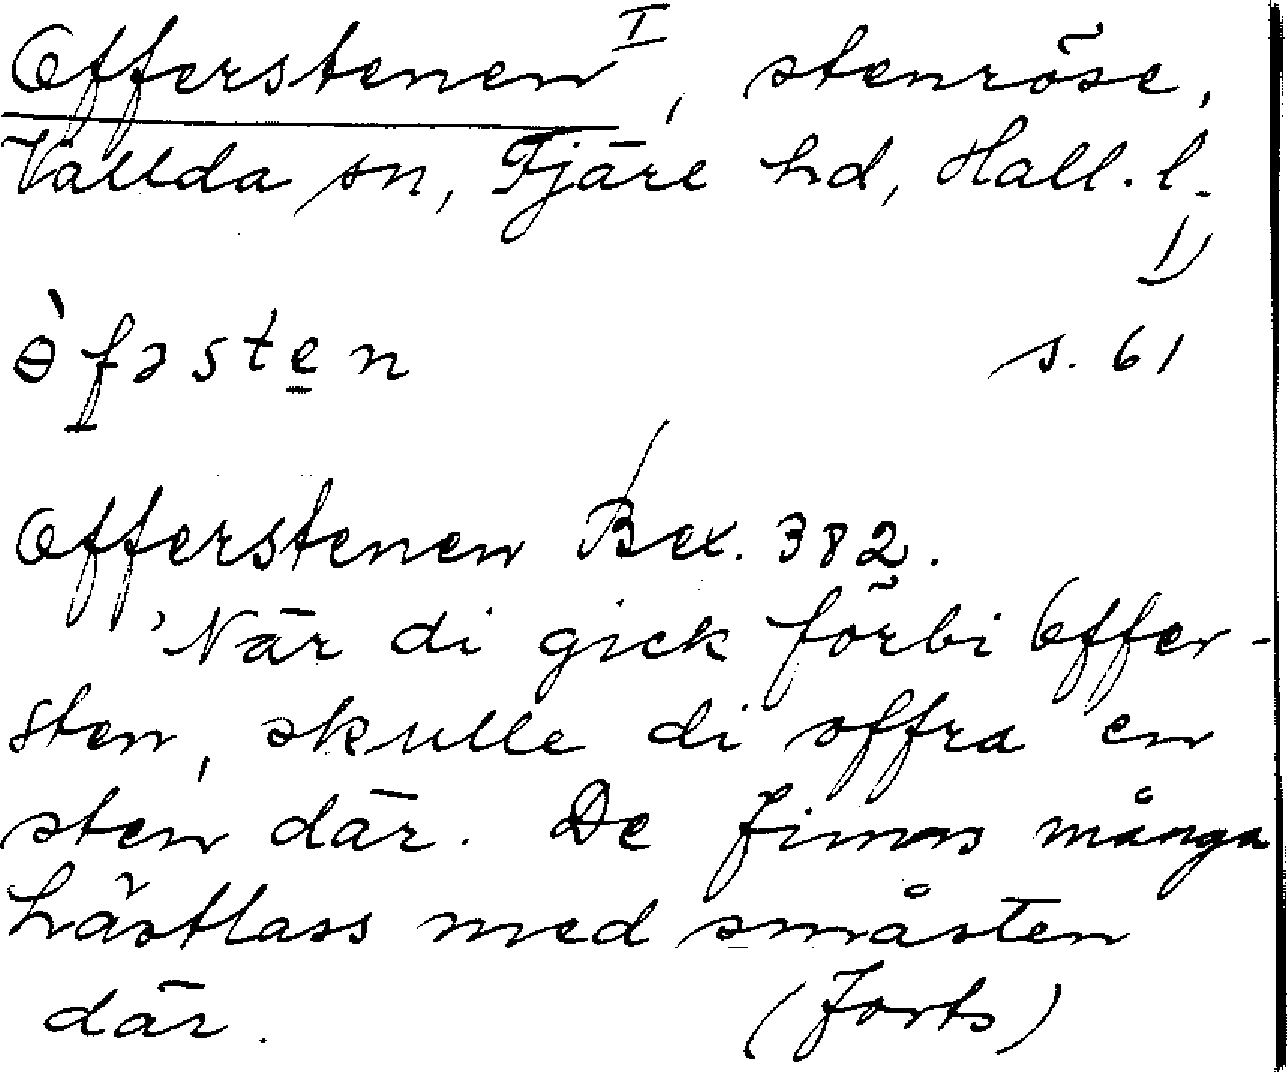 Offerstenen I, stenröse,
Vallda sn, Fjäre hd, Hall. l.
1)
òfəsten s. 61
Offerstenen Bex. 382.
'När di gick förbi Offer-
sten, skulle di offra en
sten där. De finns många
hästlass med småsten
där. (Forts)